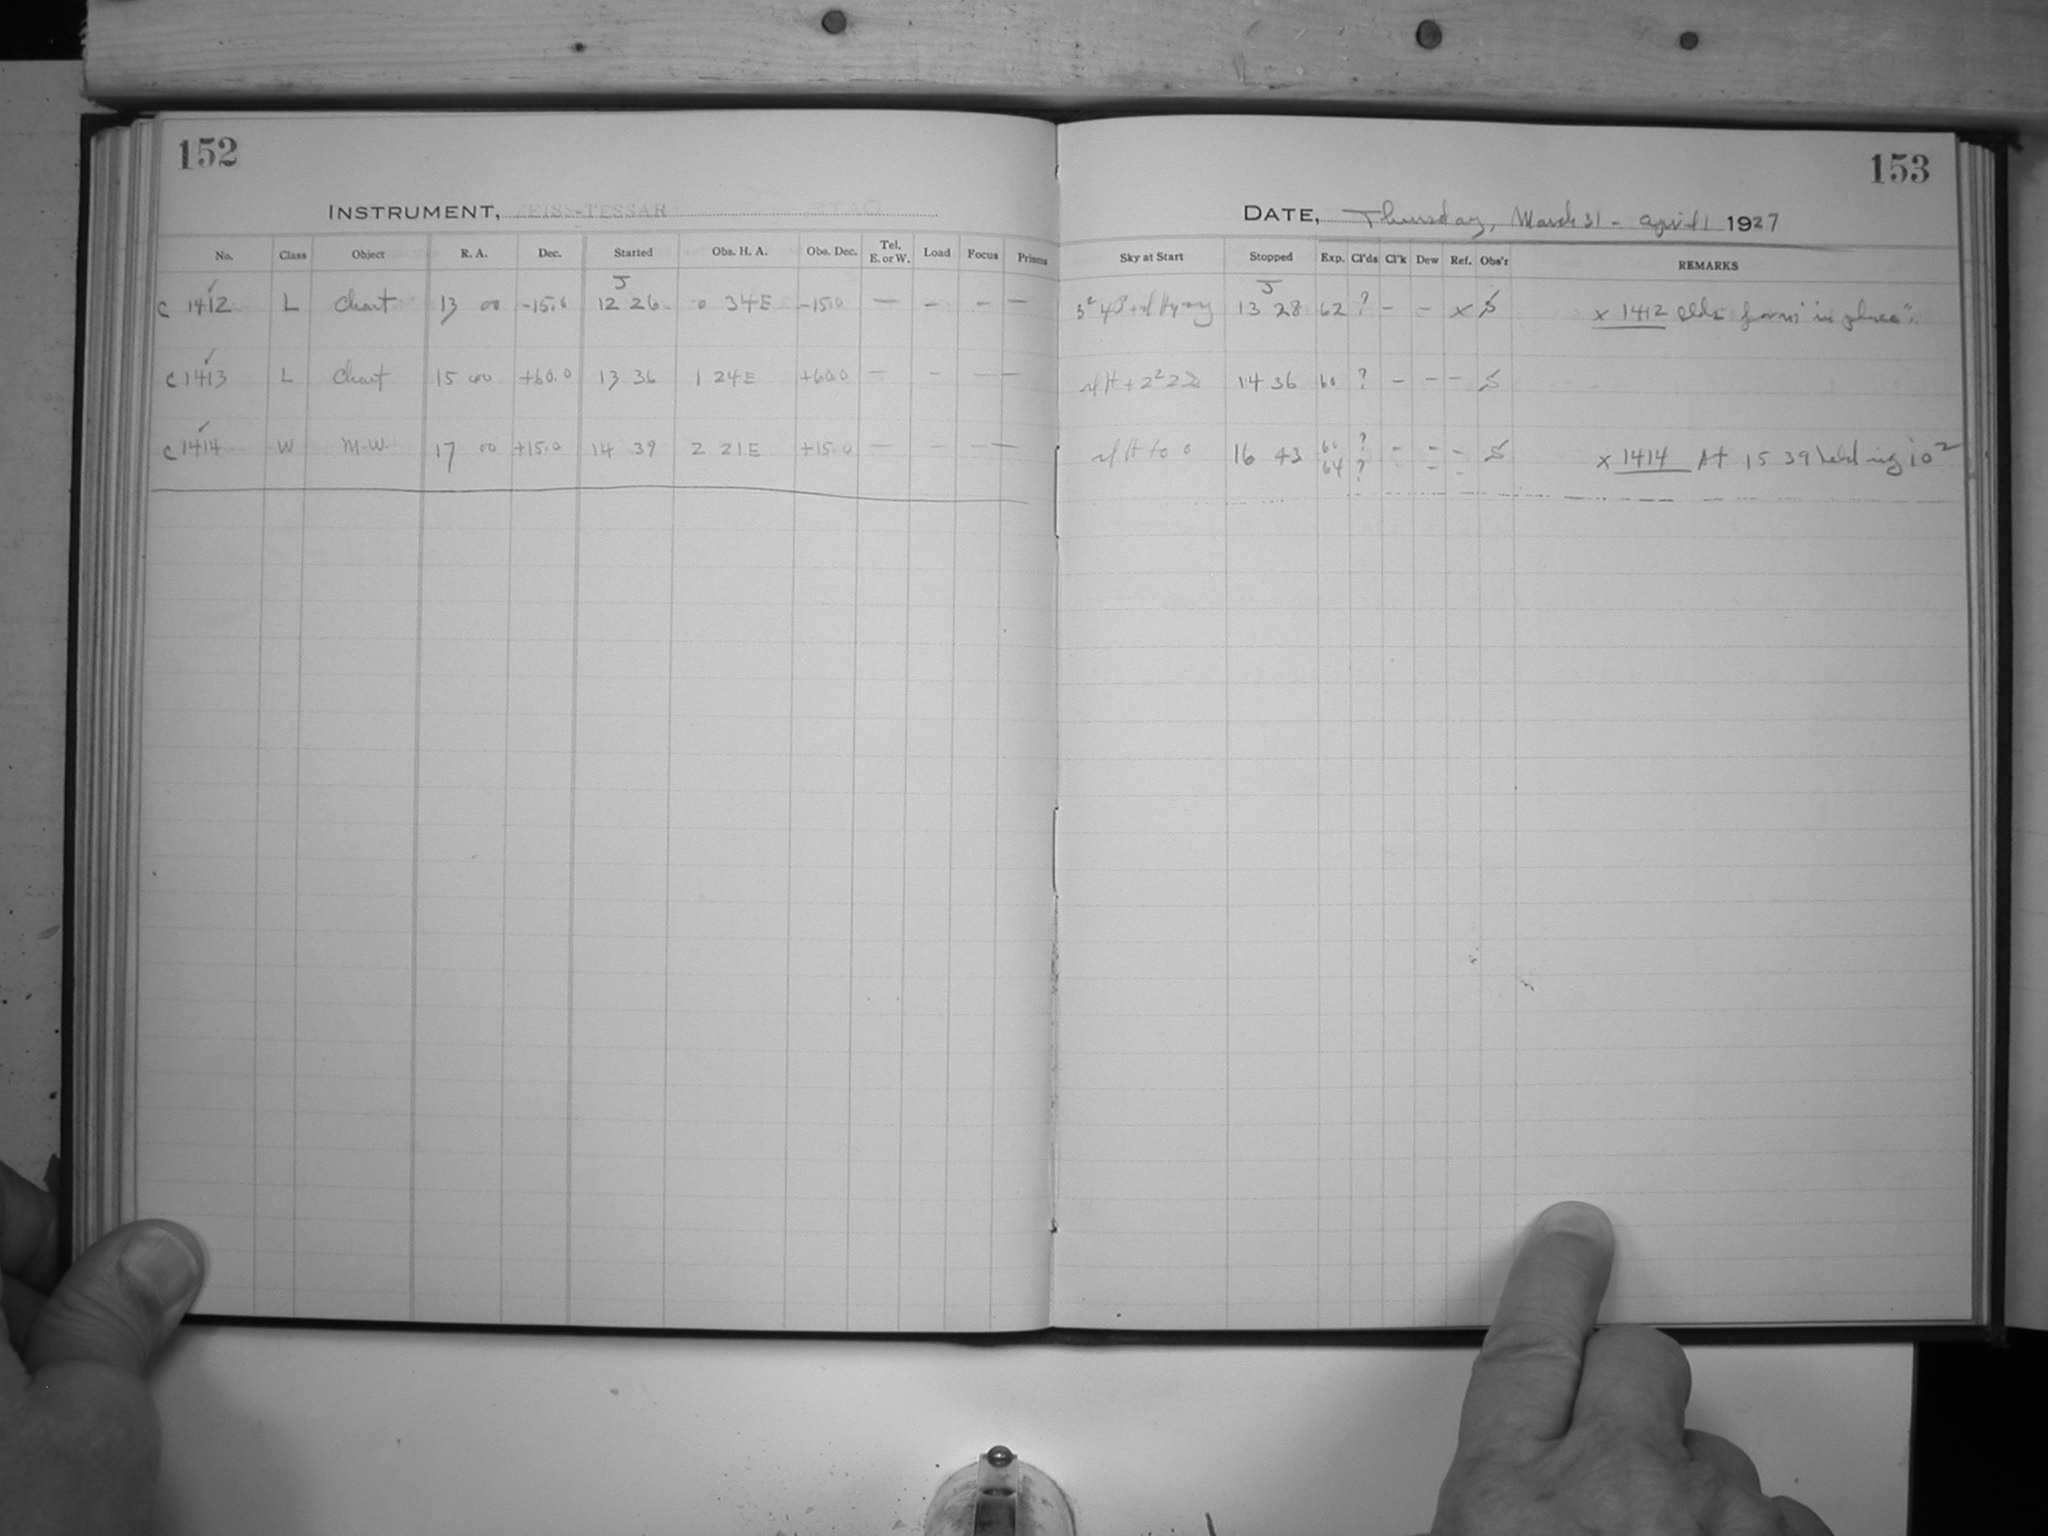 152
INSTRUMENT, ZEISS-TESSAR
No. Class Object R. A. Dec. Started Obs. H. A. Obs. Dec. Tel. E. or W. Load Focus Prisms
J
C 1412 L Chart 13 00 -15.0 12 26 0 34E -15.0 — — — —
C 1413 L Chart 15 00 +60.0 13 36 1 24E +60.0 — — — —
C 1414 W M-W. 17 00 +15.0 14 39 2 21E +15.0 — — — —
153
DATE, Thursday, March 31 - April 1 1927
Sky at Start Stopped Exp. Cl'ds Cl'k Dew Ref. Obs'r REMARKS
J
13 28 62 ? — — x S x 1412 in place".
14 36 60 ? — — — S
16 43 60 ? — — — S x 1414 At 15 39
64 ? — —